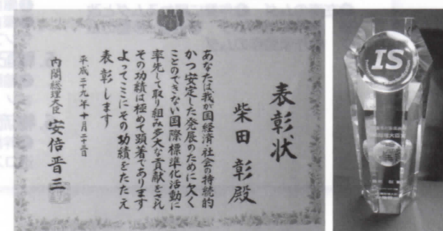 表彰状
柴田 彰殿
あなたは我が国経済社会の持続的
かつ安定した発展のために欠く
ことのできない国際標準化活動に
率先して取り組み多大な貢献をされ
その功績は極めて顕著であります
よってここにその功績をたたえ
表彰します
平成二十九年十月
内閣総理大臣 安倍晋三
IS